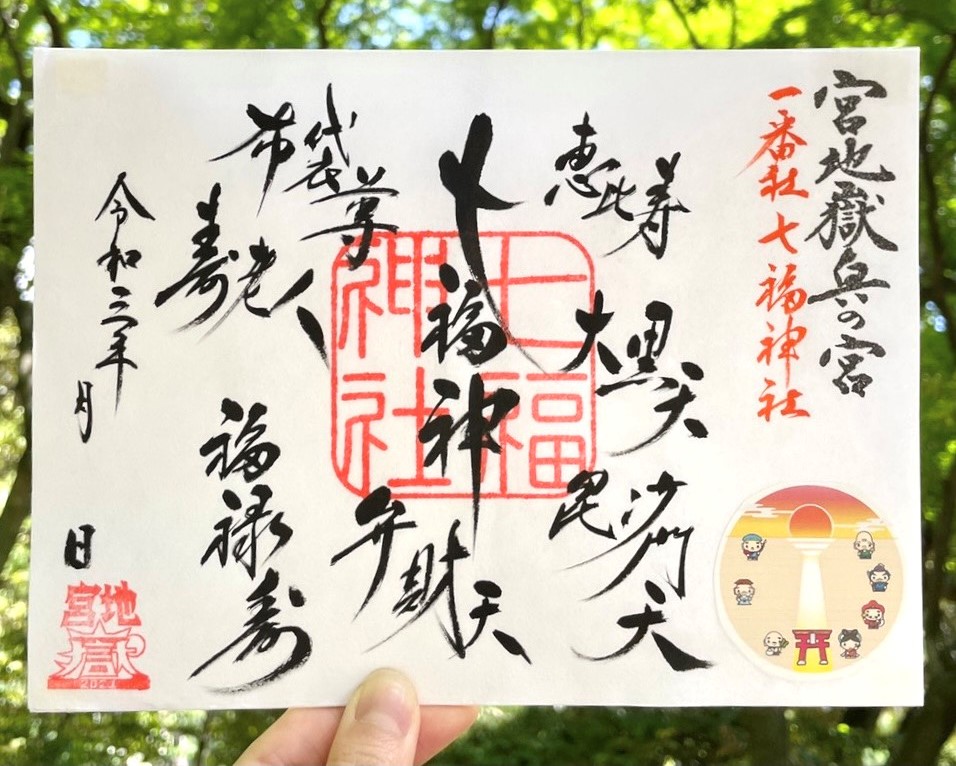 宮地嶽兵の宮
一番社七福神社
恵比寿
大黒天
毘沙門天
七福神
七福神社
弁財天
布袋尊
寿老人
福禄寿
令和三年
月
日
宮地嶽